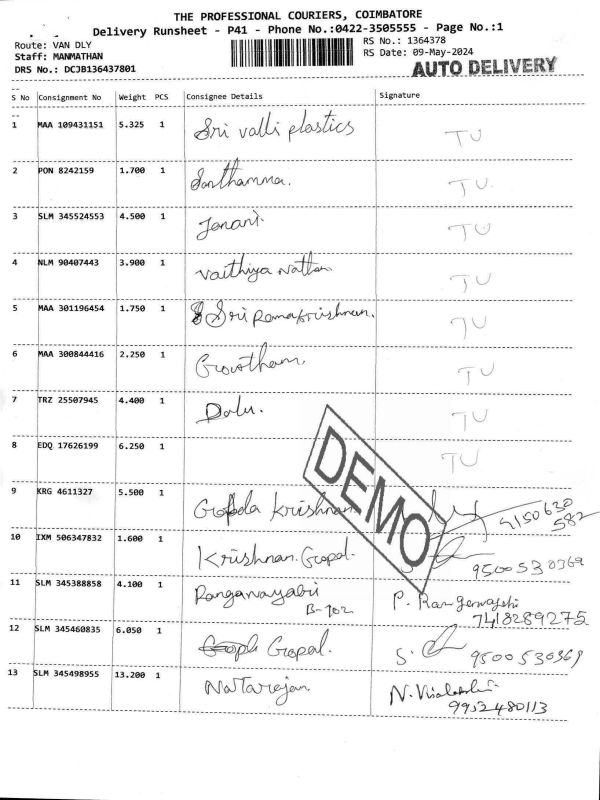 THE PROFESSIONAL COURIERS, COIMBATORE
Delivery Runsheet - P41 - Phone No.:0422-3505555 - Page No.:1
Route: VAN DLY
Staff: MANMATHAN
DRS No.: DCJB136437801
RS No.: 1364378
RS Date: 09-May-2024
AUTO DELIVERY
S No Consignment No Weight PCS Consignee Details Signature
1 MAA 109431151 5.325 1 Sri valli plastics TU
2 PON 8242159 1.700 1 Santhamma. TU.
3 SLM 345524553 4.500 1 Janani. TU
4 NLM 90407443 3.900 1 Vaithiya Nathan TU
5 MAA 301196454 1.750 1 Sri Ramakrishnan. TU
6 MAA 300844416 2.250 1 Gowtham. TU
7 TRZ 25507945 4.400 1 TU
8 EDQ 17626199 6.250 1 TU
9 KRG 4611327 5.500 1 Gopala Krishnan
9150630
582
10 IXM 506347832 1.600 1 Krishnan Gopal. S.
9500530369
11 SLM 345388858 4.100 1 Ranganayaki P.
B-102
7418289275
12 SLM 345460835 6.050 1 Gopal. S.
9500530369
13 SLM 345498955 13.200 1 Natarajan. N.
9952480113
DEMO